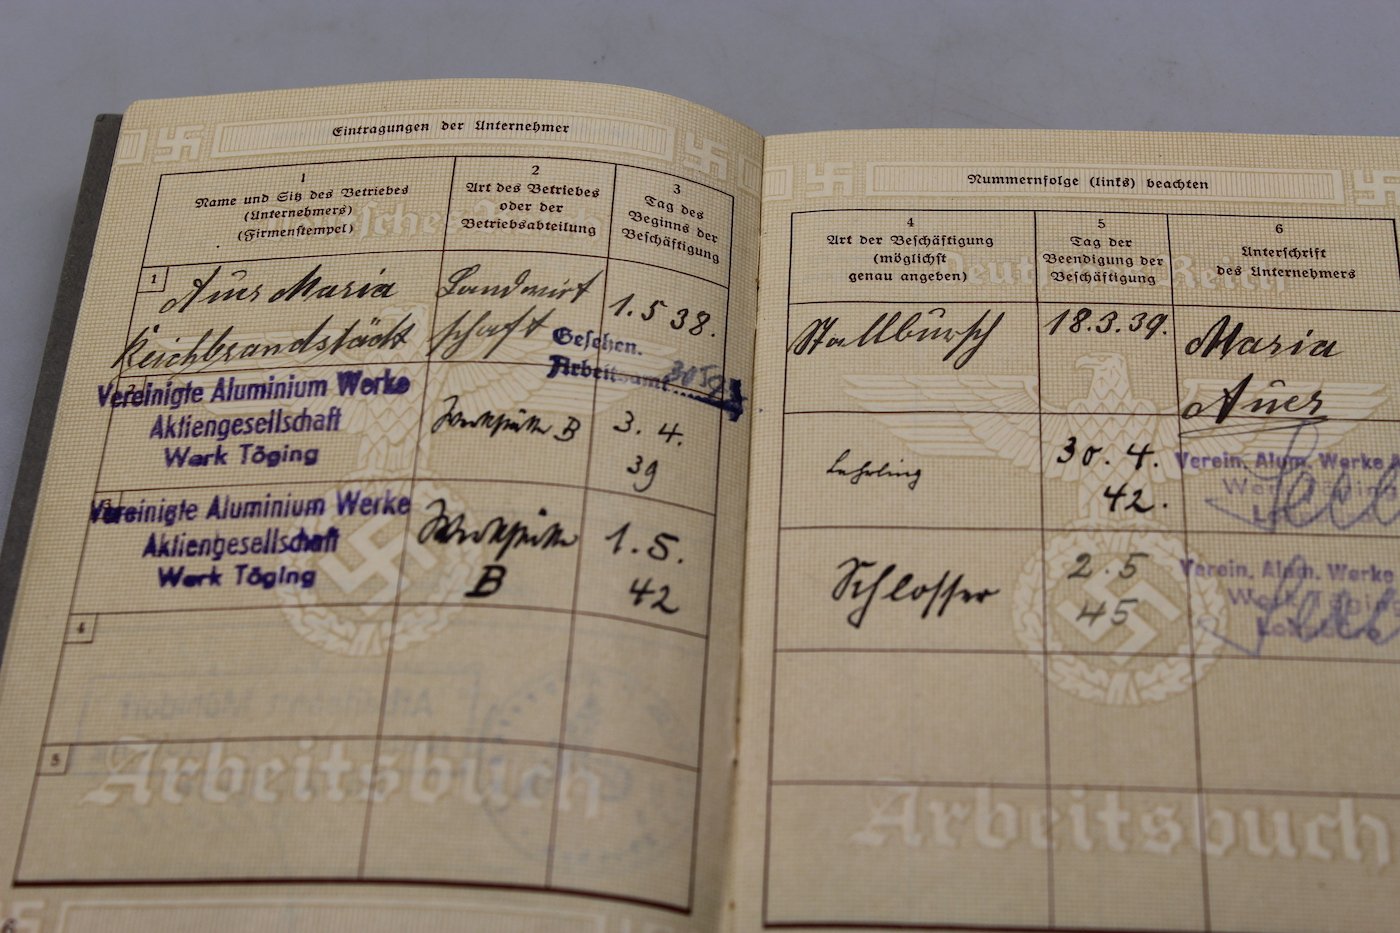 Eintragungen der Unternehmer
1
Name und Sitz des Betriebes
(Unternehmers)
(Firmenstempel)
2
Art des Betriebes
oder der
Betriebsabteilung
3
Tag des
Beginns der
Beschäftigung
1
Auer Maria
Landwirt
1. 5 38.
schaft
Gesehen.
Arbeitsamt
Vereinigte Aluminium Werke
Aktiengesellschaft
Werk Töging
Werkstätte B
3. 4.
39
Vereinigte Aluminium Werke
Aktiengesellschaft
Werk Töging
Werkstätte
B
1. 5.
42
4
5
Arbeitsbuch
Nummernfolge (links) beachten
4
Art der Beschäftigung
(möglichst
genau angeben)
5
Tag der
Beendigung der
Beschäftigung
6
Unterschrift
des Unternehmers
Deutsches Reich
Stallbursch
18. 3. 39.
Maria
Auer
Lehrling
30. 4.
42.
Verein. Alum. Werke
Werk Töging
Schlosser
2. 5
45
Verein. Alum. Werke
Werk Töging
Arbeitsbuch